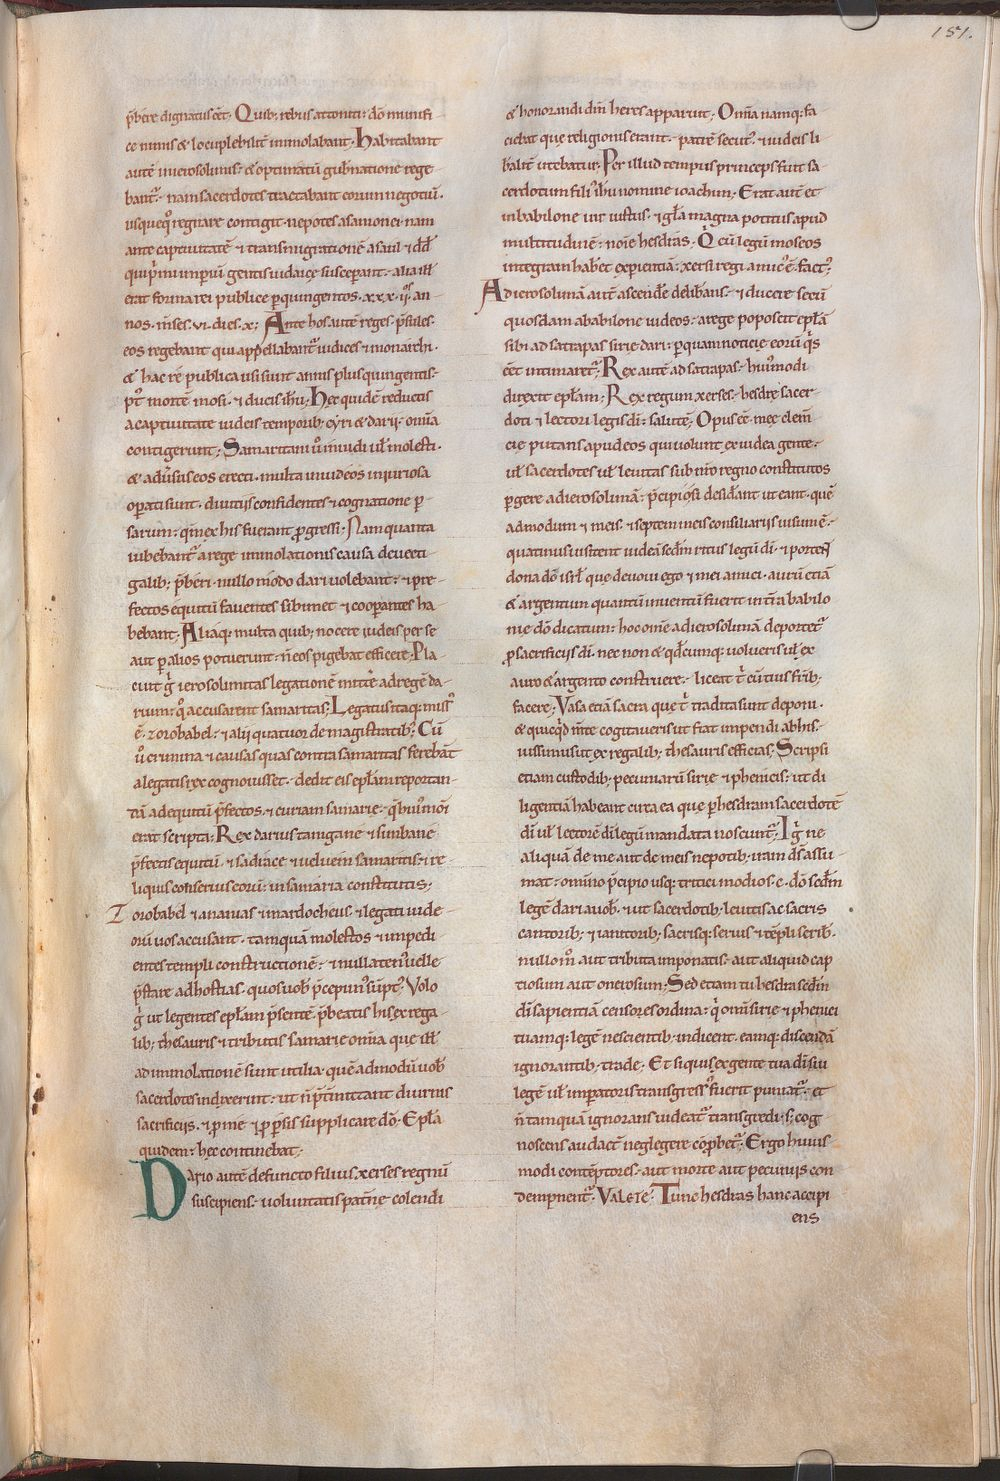 151.
p̄bere dignatus eēt. Quib; rebus attoniti. dō munifi-
ce nimis & locuplebilit̄ immolabant; Habitabant
autē inierosolimis. & optimatū gub̄natione rege-
bant̄. nam sacerdotes tractabant eorum negotiū.
usquequo regnare contigit. nepotes asamonei. nam
ante captiuitatē ⁊ transmigrationē a saul ⁊ dd̄
qui p̄mi imp̄iū gentis iudaicę susceperant. alia ill̄
erat forma rei publicę p̄ quingentos. xxx. ii. an-
nos. m̄ses. vi. dies. x; Ante hos autē reges p̄fules.
eos regebant qui appellabant̄ iudices ⁊ monarchi.
& hac rē publica usi sunt annis plus quingentis.
pt̄ mortē mosi. ⁊ ducis ihū; Hęc quidē reductis
a captiuitate iudeis temporib; cyri & darii. om̄ia
contigerunt; Samaritani ū inuidi ul̄ molesti.
& adūsus eos erecti. multa in iudeos iniuriosa
operati sunt. diuitiis confidentes ⁊ cognatione p̄-
sarum. qm̄ ex his fuerant p̄gressi. Nam quanta
iubebant̄ a rege immolationis causa de uecti-
galib; p̄beri. nullo modo dari uolebant. ⁊ pre-
fectos equitū fauentes sibimet ⁊ cooperantes ha-
bebant; Aliaq; multa quib; nocere iudeis per se
aut p̄ alios potuerunt. n̄ eos pigebat efficere; Pla-
cuit ḡ ierosolimitas legationē mittere ad regē da-
rium. quo accusarent samaritas; Legatus itaq; miss'
ē. zorobabel. ⁊ alii quatuor de magistratib;. Cū
ū crimina ⁊ causas quas contra samaritas ferebāt
a legatis rex cognouisset. dedit eis ep̄lam reportan-
dā ad equitū p̄fectos. ⁊ curiam samarię. q̄ huiusmōi
erat scripta; Rex darius tamganę ⁊ simbane
p̄fectis equitū. ⁊ sadiace ⁊ ueluein samaritis. ⁊ re-
liquis conseruis eorū. in samaria constitutis;
Zorobabel ⁊ ananias ⁊ mardocheus. ⁊ legati iude-
orū uos accusant. tamquā molestos ⁊ impedi-
entes templi constructionē. ⁊ nullaten' uelle
p̄stare ad hostias. quos uob̄ p̄cepim' sūpt'. Volo
ḡ ut legentes ep̄lam p̄sentē p̄beatis his ex rega-
lib; thesauris ⁊ tributis samarie om̄ia que ill̄
ad immolationē sunt utilia. quē admodū uob̄
sacerdotes indixerint. ut n̄ p̄t̄mittant diurnis
sacrificiis. ⁊ p̄ me ⁊ p̄ p̄sis supplicare dō. Ep̄la
quidem. hęc continebat;
Dario autē defuncto filius xerses regnū
suscipiens. uoluntatis patn̄e colendi
& honorandi dm̄ heres apparuit. Omīa namq; fa-
ciebat quę religionis erant. patrē secut'. ⁊ iudeis li-
balit̄ utebatur. Per illud tempus princeps fuit sa-
cerdotum fili' ihū nomine ioachim. Erat aut̄ et
in babilone uir iustus. ⁊ gl̄a magna potitus apud
multitudinē. noīe hesdras. Q̄ cū legū moseos
integram hab̄et exp̄ientiā. xersi regi amic' ē fact';
Ad ierosolimā aut̄ ascende deliberans. ⁊ ducere secū
quosdam a babilone iudeos. a rege poposcit ep̄lā
sibi ad satrapas sirię dari. p̄ quam noticie eorū q̄s
eēt intimaret̄. Rex autē ad satrapas. hui'modi
direxit ep̄lam. Rex regum xerses. hesdrę sacer-
doti ⁊ lectori legis dī. salutē; Opus eē meę clem̄-
cię putans apud eos qui uolunt ex iudea gente.
ul̄ sacerdotes ul̄ leuitas sub nr̄o regno constitutos
pergere ad ierosolimā. p̄cipio si desid̄ant ut eant. quē
admodum ⁊ meis. ⁊ septem meis consiliariis uisum ē.
quatinus uisitent iudeā sedm̄ ritus legū dī. ⁊ portent
dona dō isrl̄ que deuoui ego ⁊ mei amici. aurū etiā
& argentum quantū inuentū fuerit in tr̄a babilo-
nie dō dicatum. hoc om̄e ad ierosolimā deportet̄
p̄ sacrificiis dī. nec non & qd̄cumq; uolueris ul̄ ex
auro & argento construere. liceat t̄ cū tuis frīb;
facere; Vasa etiā sacra que t̄ tradita sunt deponi.
& quicq̄d in te cogitaueris ut fiat impendi ab his.
iussimus. ut ex regalib; thesauris efficias; Scripsi
etiam custodib; pecuniarū sirie ⁊ phenicis. ut di-
ligentiā habeant circa ea que p̄ hesdram sacerdotē
dī ul̄ lectorē dī legū mandata noscunt̄; Iḡ ne
aliquā de me aut de meis nepotib; iram ds̄ assu-
mat. omīno p̄cipio usq; tritici modios. c. dō sedm̄
legē dari a uob̄. ⁊ ut sacerdotib; leuitis ac sacris
cantorib; ⁊ ianitorib; sacrisq; seruis ⁊ tēpli scrib̄.
nullom̄ aut tributa imponatis. aut aliquid cap-
tiosum aut onerosum; Sed etiam tu hesdra sedm̄
dī sapientiā censores ordina. q̄ omī sirię ⁊ phenici
tuamq; legē nescientib; indicent. eamq; discendā
ignorantib; trade; Et siquis ex gente tua dī siu
legē ul̄ imp̄atoris transgress' fuerit puniat̄. et
n̄ tamquā ignorans uideat̄ transgredi. s; cog-
noscens audact̄ neglegere cōp̄bet̄. Ergo huius-
modi contēptores. aut morte aut pecuniis con-
dempnent̄. Valete; Tunc hesdras hanc accipi-
ens